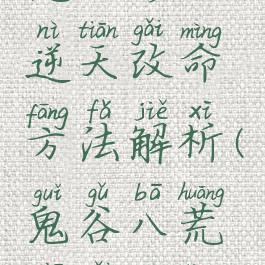 nì tiān gǎi mìng
逆天改命
fāng fǎ jiě xī
方法解析(
guǐ gǔ bā huāng
鬼谷八荒